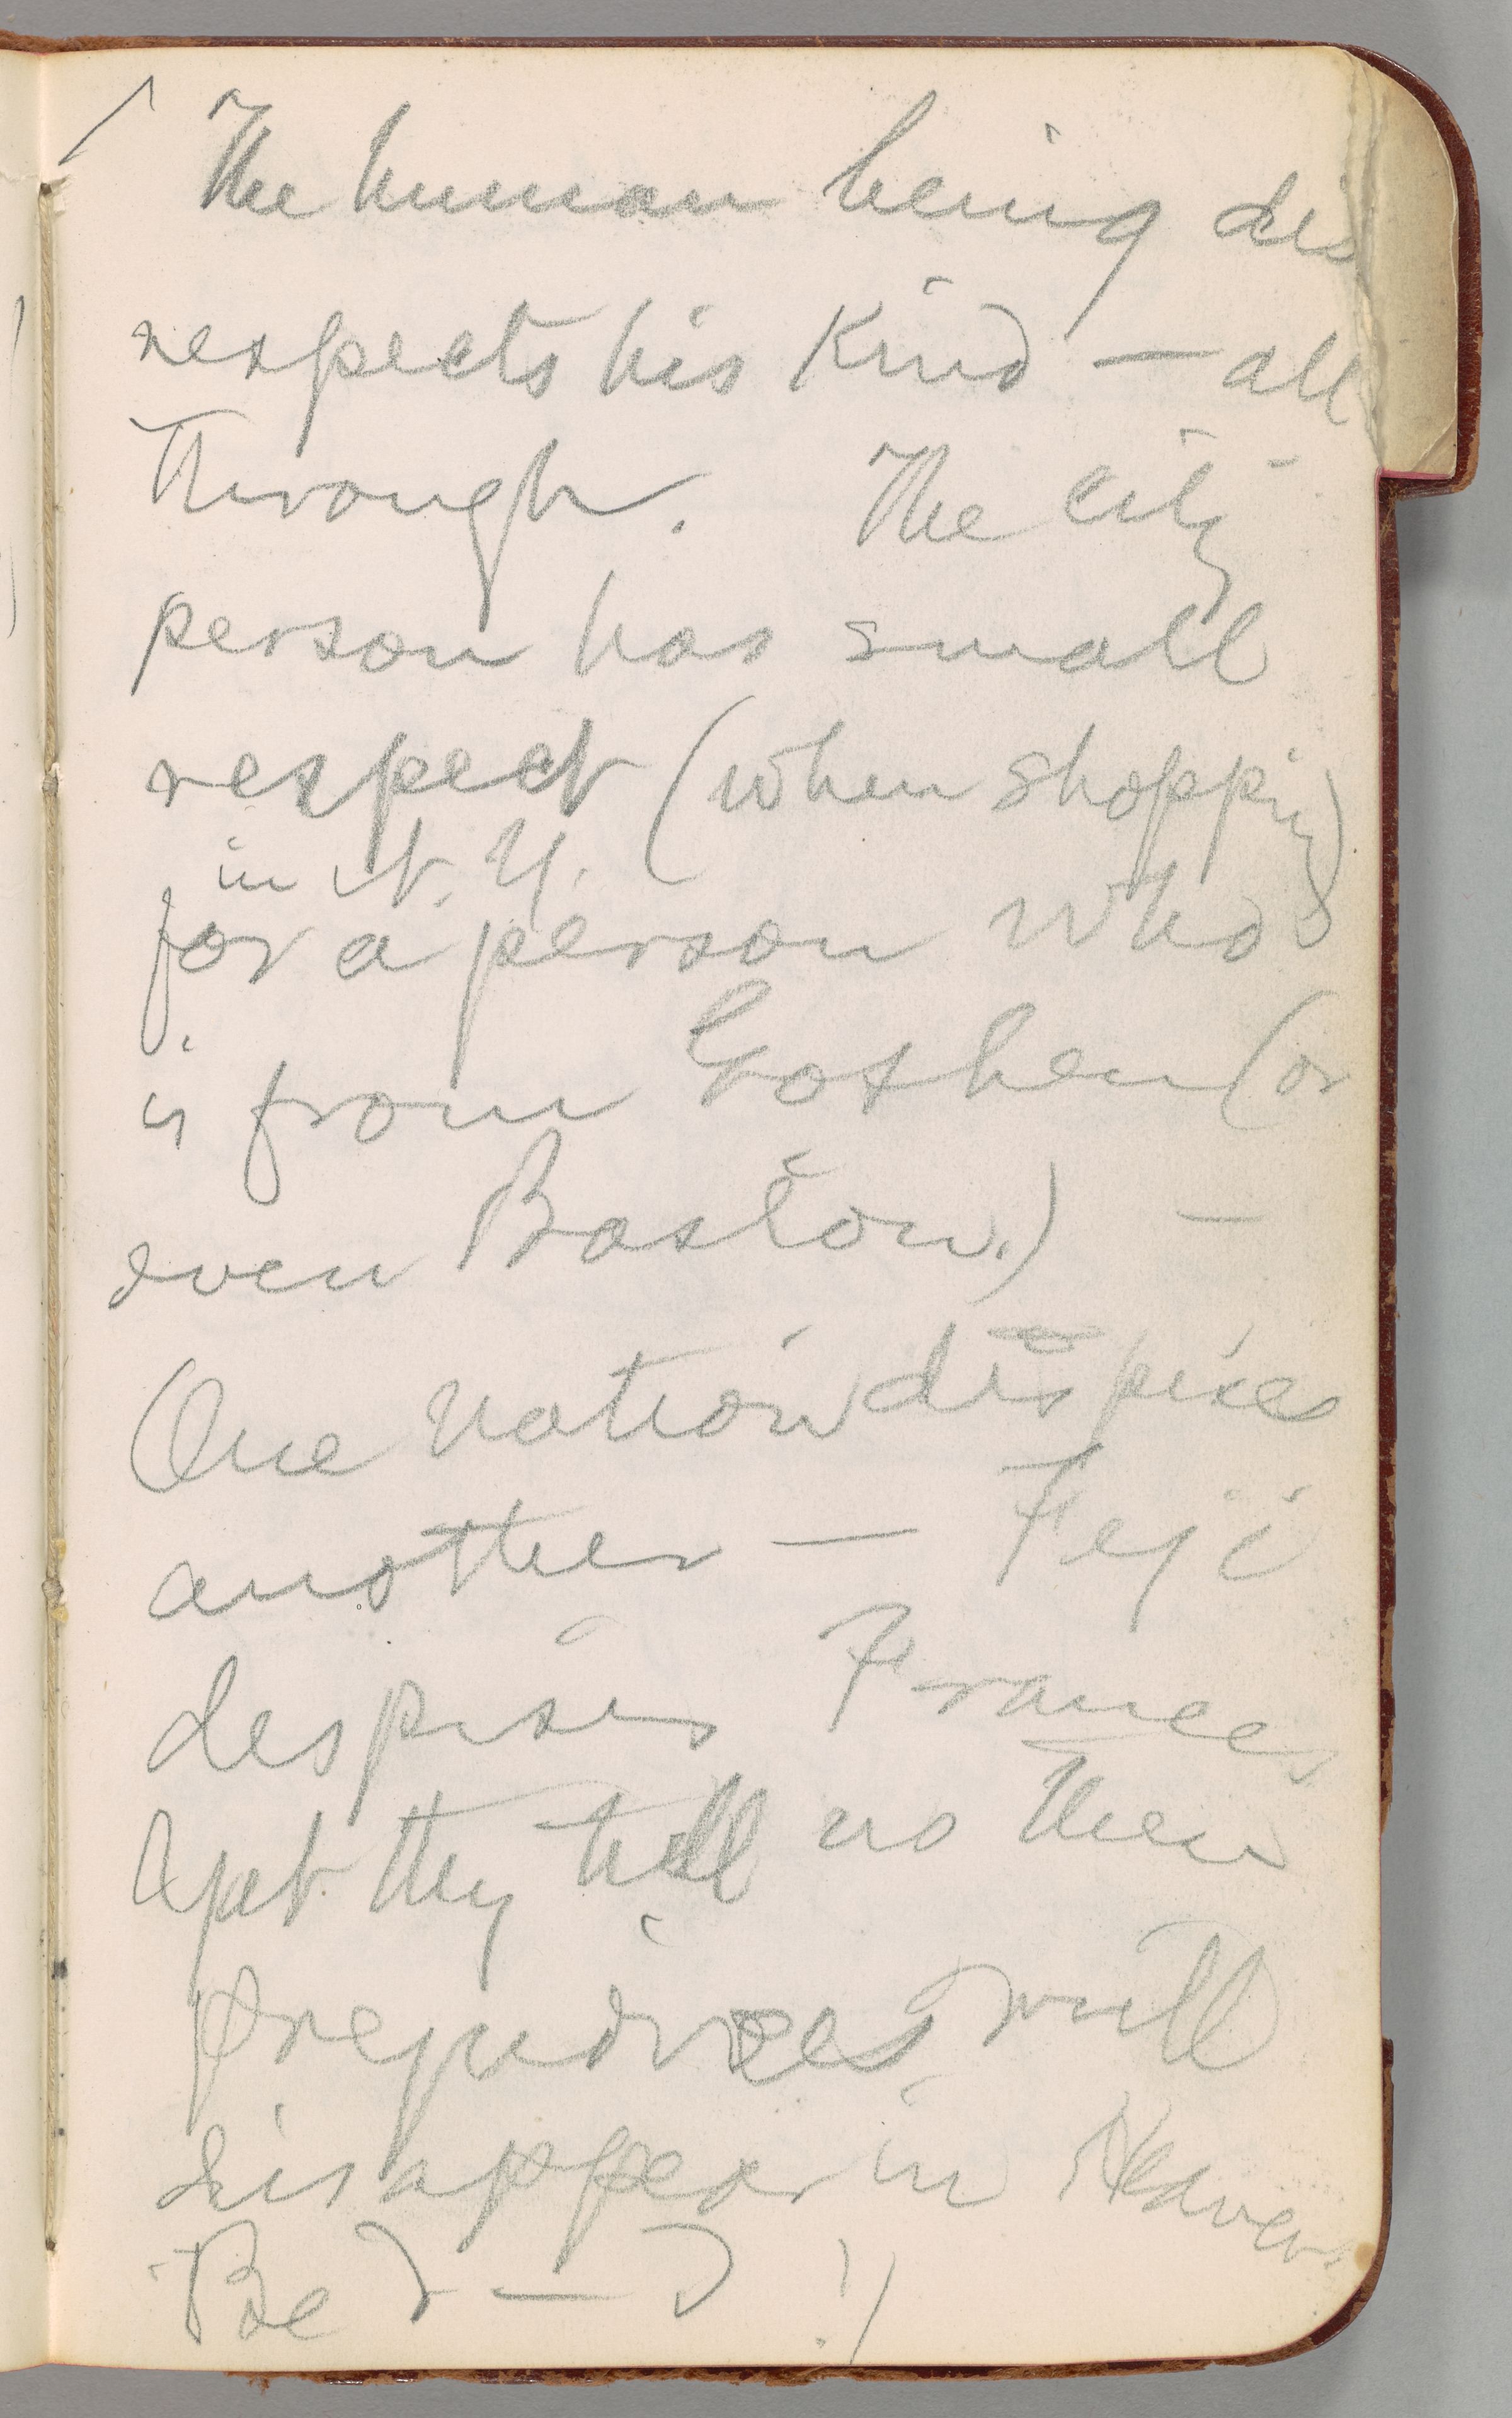 The human being dis
respects his kind — all
through. The city
person has small
respect (when shopping)
in N. Y.
for a person who
is from Goshen (or
even Boston.) —
One nation despises
another — Feji
despises France,
& yet they tell us their
prejudices will
disappear in Heaven
Be d—d!)